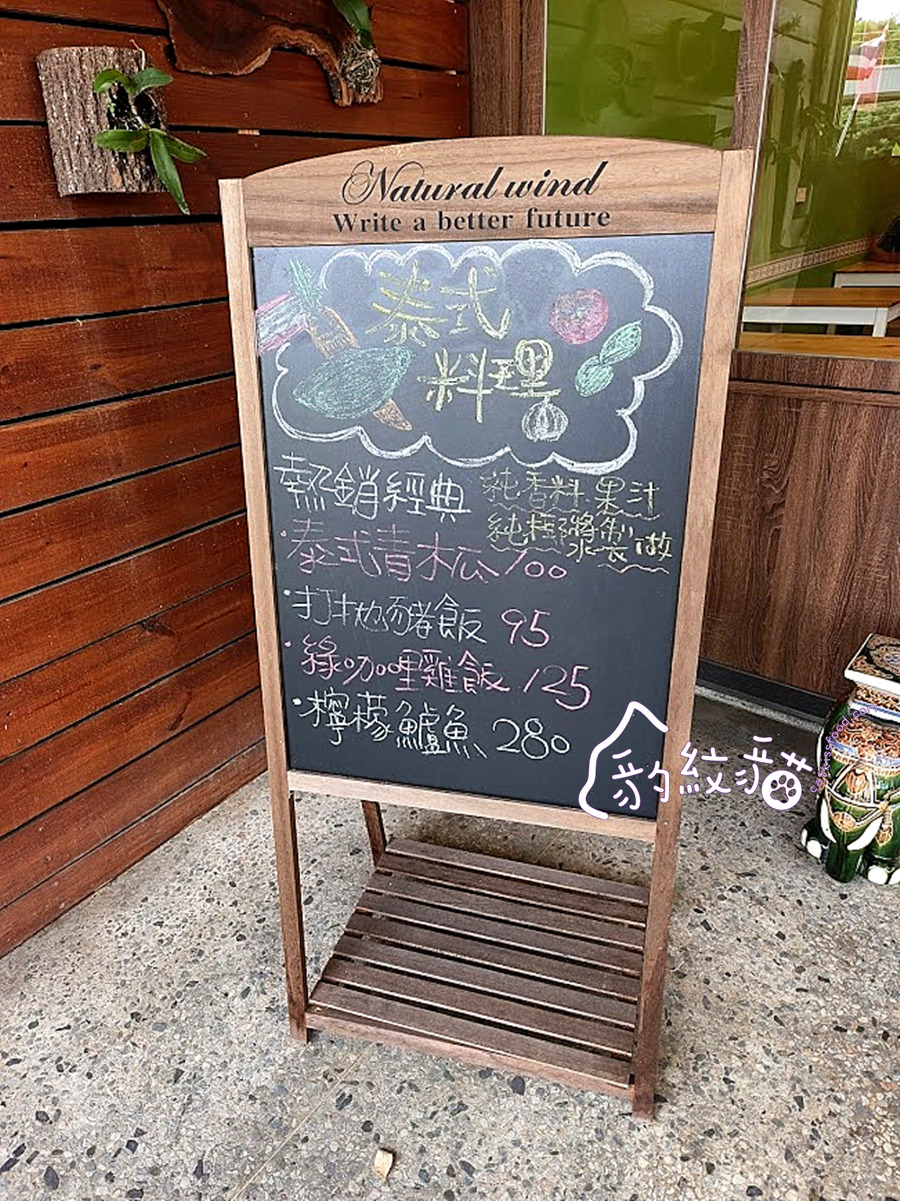 Natural wind
Write a better future
泰式
料理
熱銷經典
純香料.果汁
純椰漿製做
·泰式青木瓜100
·打拋豬飯 95
·綠咖哩雞飯 125
·檸檬鱸魚 280
豹紋貓